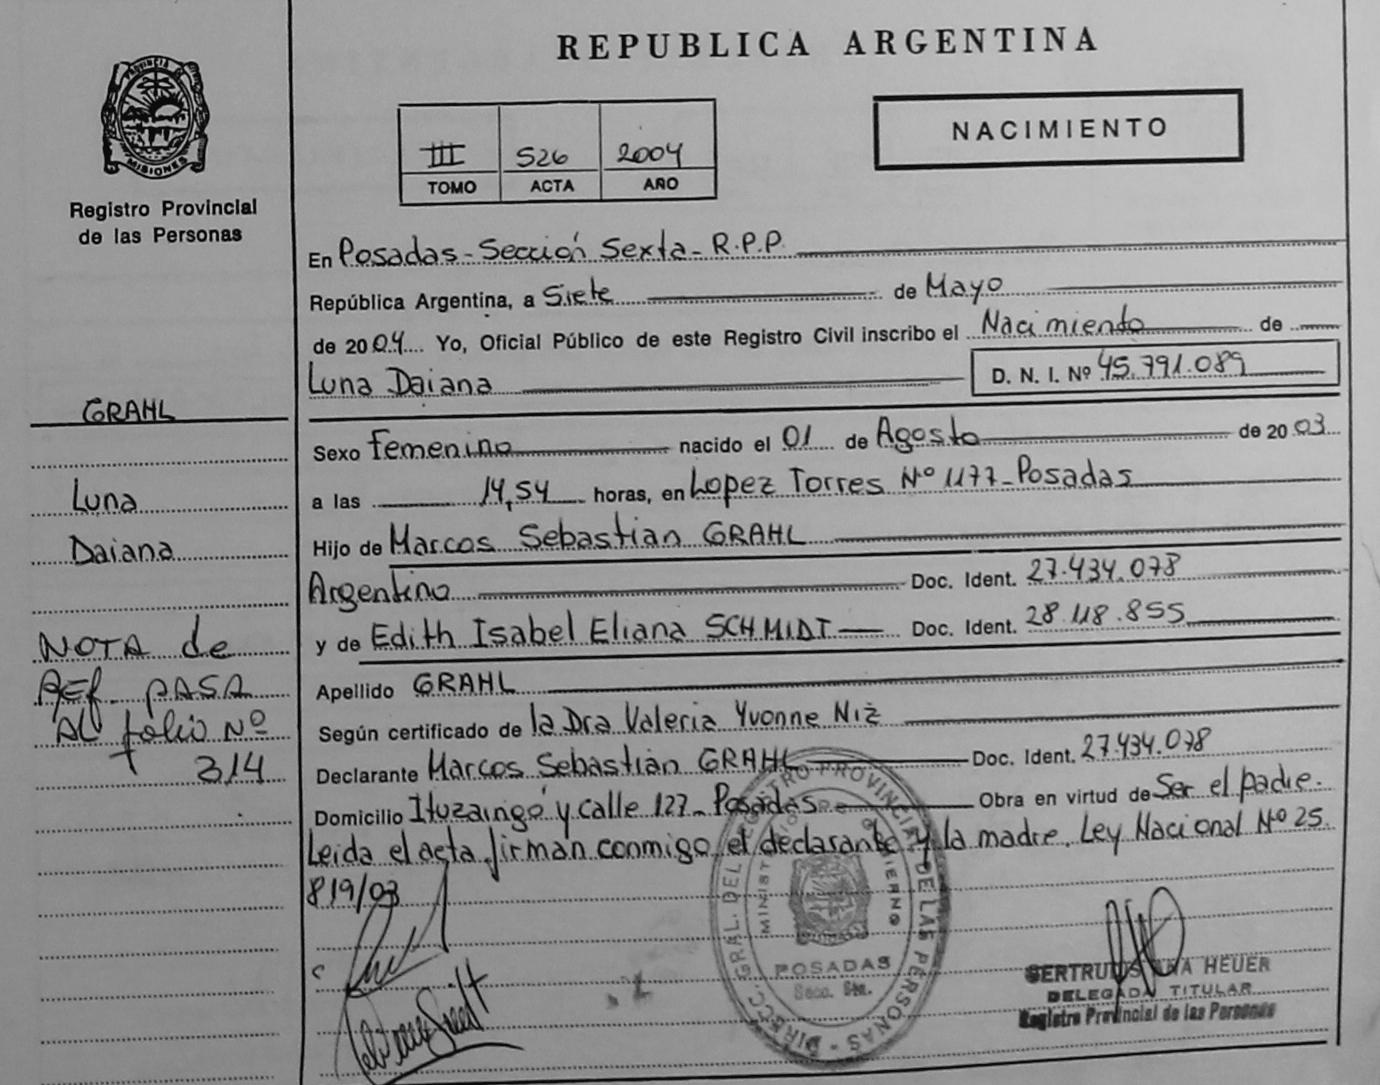 REPUBLICA ARGENTINA
PROVINCIA DE
MISIONES
Registro Provincial
de las Personas
III 526 2004
TOMO ACTA AÑO
NACIMIENTO
En Posadas - Sección Sexta - R.P.P.
República Argentina, a Siete de Mayo
de 2004 Yo, Oficial Público de este Registro Civil inscribo el Nacimiento de
Luna Daiana D. N. I. Nº 45.791.089
GRAHL
Luna
Daiana
NOTA de
REf. PASA
AL folio Nº
314
Sexo femenino nacido el 01 de Agosto de 2003
a las 14,54 horas, en Lopez Torres Nº 1177 - Posadas
Hijo de Marcos Sebastian GRAHL
Argentino Doc. Ident. 27.434.078
y de Edith Isabel Eliana SCHMIDT Doc. Ident. 28.118.855
Apellido GRAHL
Según certificado de la Dra Valeria Yvonne Niz
Declarante Marcos Sebastian GRAHL Doc. Ident. 27.434.078
Domicilio Ituzaingó y calle 127 - Posadas Obra en virtud de Ser el padre.
Leida el acta, firman conmigo, el declarante y la madre. Ley Nacional Nº 25.
819/03
DIRECC. GRAL. DEL REGISTRO PROVINCIAL DE LAS PERSONAS
MINISTERIO DE GOBIERNO
POSADAS
Secc. 6ta.
GERTRUDIS HEUER
DELEGADA TITULAR
Registro Provincial de las Personas